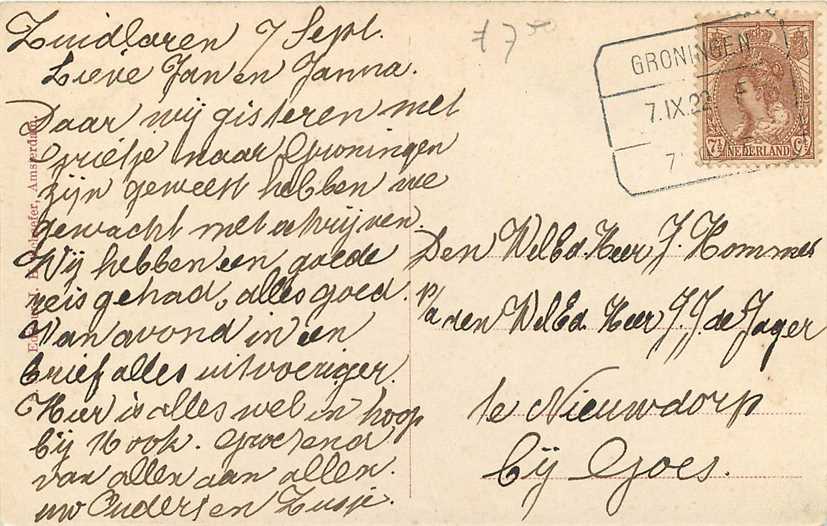 Zuidlaren 7 Sept.
Lieve Jan en Janna.
Daar wij gisteren met
Grietje naar Groningen
zijn geweest hebben we
gewacht met schrijven.
Wij hebben een goede
reis gehad, alles goed.
Van avond in een
brief alles uitvoeriger.
Hier is alles wel in hoop
bij U ook. Groetend
van allen aan allen.
uw Ouders en Zusje.
£ 7 50
GRONINGEN
7.IX.22
7
7½ NEDERLAND Ct
Den WelEd. Heer J. Hommes
p/a den WelEd. Heer J. J. de Jager
te Nieuwdorp
bij Goes.
Amsterdam.